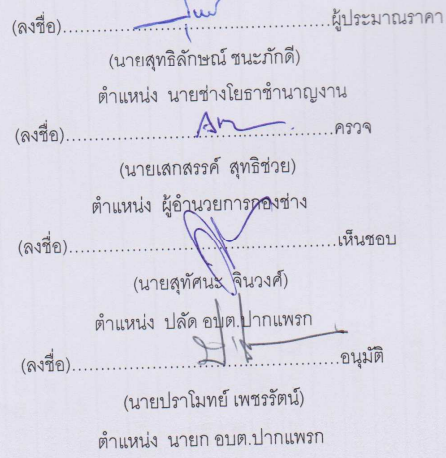 (ลงชื่อ)..............................................ผู้ประมาณราคา
(นายสุทธิลักษณ์ ชนะภักดี)
ตำแหน่ง นายช่างโยธาชำนาญงาน
(ลงชื่อ)..............................................ตรวจ
(นายเสกสรรค์ สุทธิช่วย)
ตำแหน่ง ผู้อำนวยการกองช่าง
(ลงชื่อ)..............................................เห็นชอบ
(นายสุทัศนะ จินวงศ์)
ตำแหน่ง ปลัด อบต.ปากแพรก
(ลงชื่อ)..............................................อนุมัติ
(นายปราโมทย์ เพชรรัตน์)
ตำแหน่ง นายก อบต.ปากแพรก